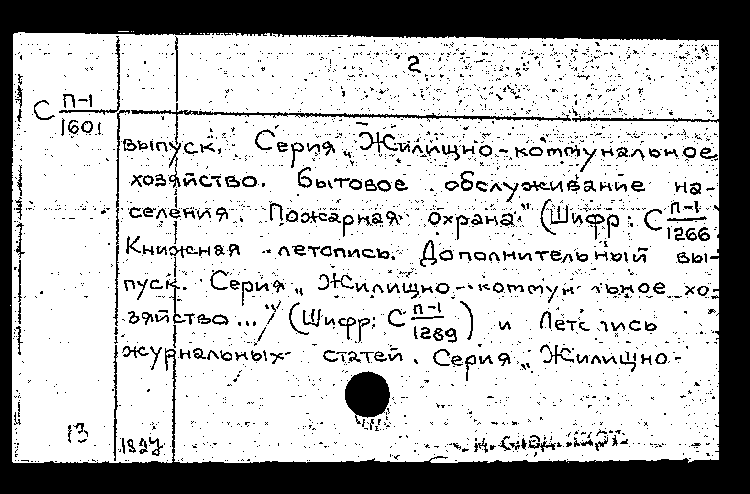 2
С П-1
1601
выпуск. Серия „Жилищно-коммунальное
хозяйство. Бытовое обслуживание на-
селения. Пожарная охрана" (Шифр: С П-1
1266
Книжная летопись. Дополнительный вы-
пуск. Серия „Жилищно-коммунальное хо-
зяйство..." (Шифр: С П-1
1289) и Летопись
журнальных статей. Серия „Жилищно-
13